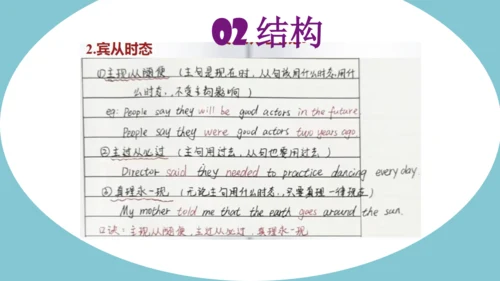 02 结构
2.宾从时态
①主现从随便（主句是现在时，从句该用什么时态用什
么时态，不受主句影响）
eg: People say they will be good actors in the future
People say they were good actors two years ago
②主过从必过（主句用过去，从句也要用过去）
Director said they needed to practice dancing every day
③真理永一现（无论主句用什么时态，只要真理一律现在）
My mother told me that the earth goes around the sun.
口诀：主现从随便，主过从必过，真理永一现